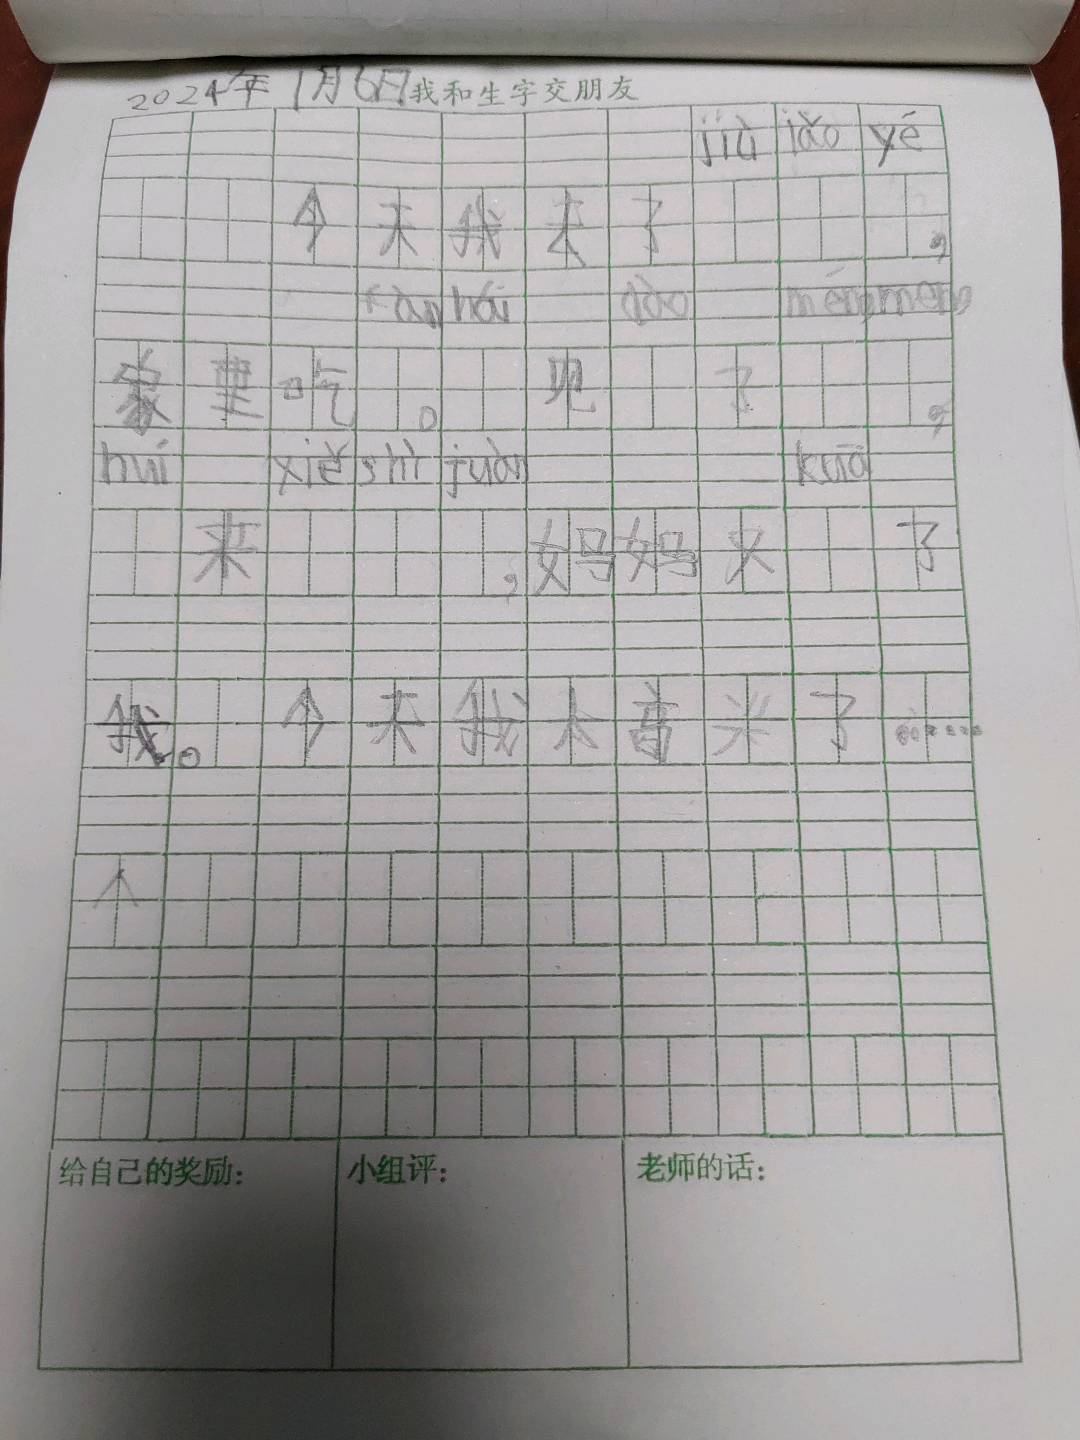 2024年1月6日我和生字交朋友
jiù jǎo yé
今天我去了，
fàn hái dào méngmeng
家里吃。见了，
huí xiě shì juàn kuā
来，妈妈又了
我。今天我太高兴了……
给自己的奖励： 小组评： 老师的话：